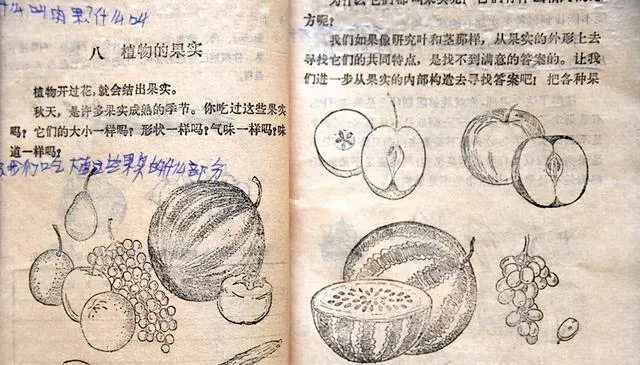 什么叫肉果?什么叫
八 植物的果实
植物开过花,就会结出果实。
秋天,是许多果实成熟的季节。你吃过这些果实
吗?它们的大小一样吗?形状一样吗?气味一样吗?味
道一样吗?
我们吃 这些果实的什么部分
方呢?
我们如果像研究叶和茎那样,从果实的外形上去
寻找它们的共同特点,是找不到满意的答案的。让我
们进一步从果实的内部构造去寻找答案吧!把各种果